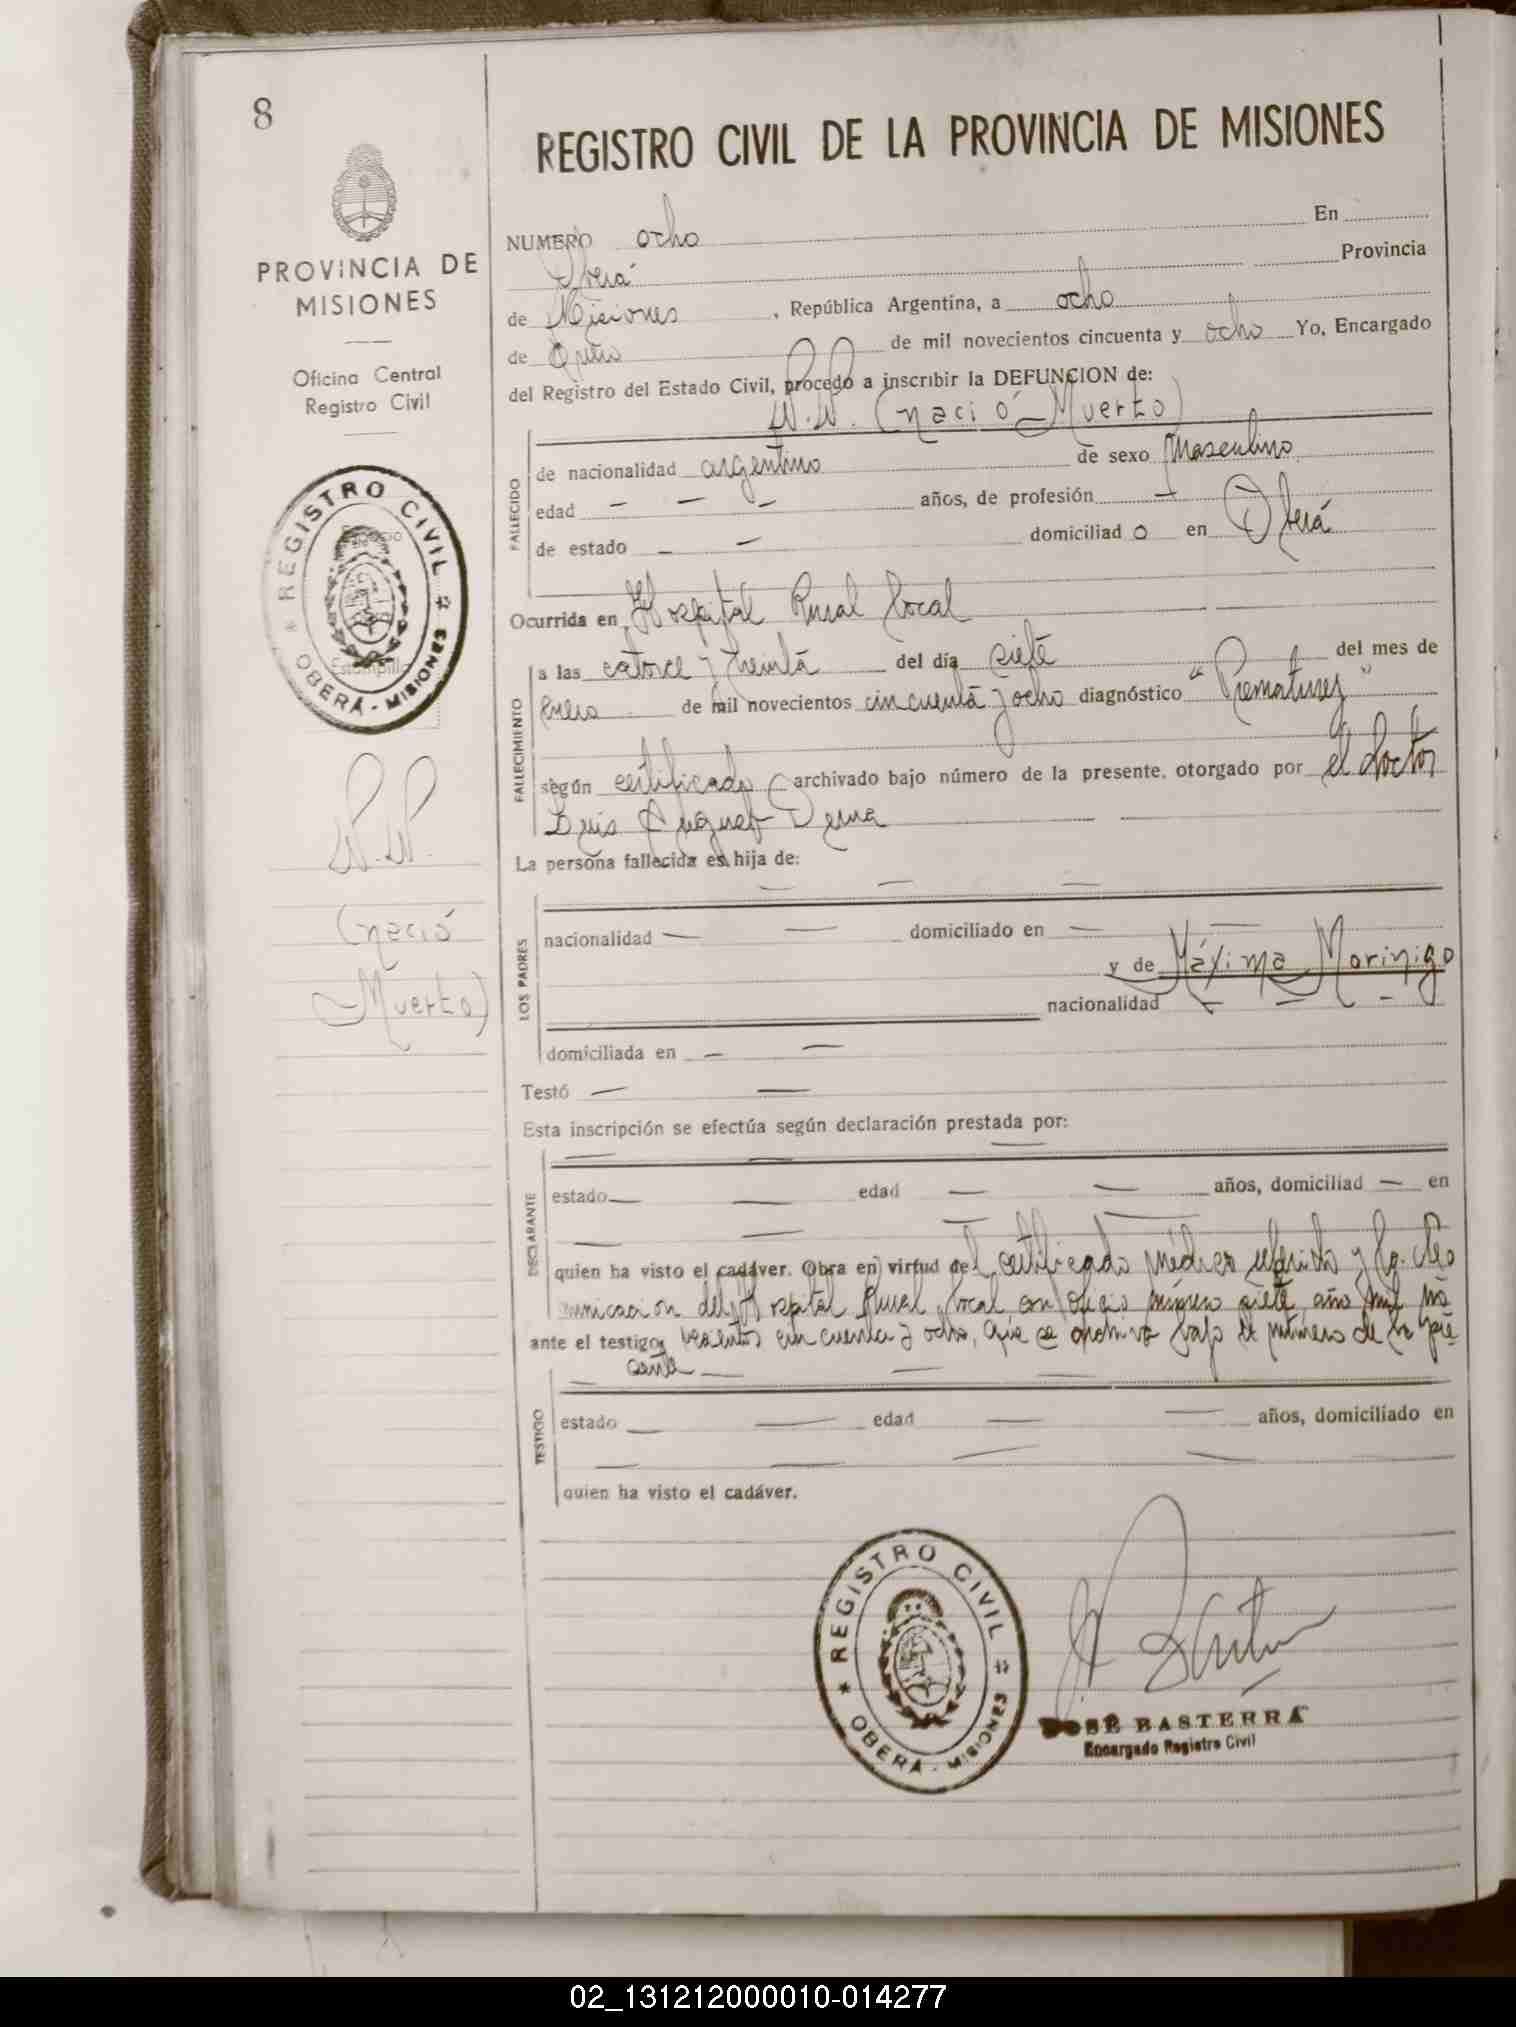 8
REGISTRO CIVIL DE LA PROVINCIA DE MISIONES
PROVINCIA DE
MISIONES
Oficina Central
Registro Civil
REGISTRO CIVIL
OBERÁ - MISIONES
N.N.
(nació
Muerto)
NUMERO ocho En
Oberá Provincia
de Misiones, República Argentina, a ocho
de Enero de mil novecientos cincuenta y ocho Yo, Encargado
del Registro del Estado Civil, procedo a inscribir la DEFUNCION de:
N.N. (nació Muerto)
FALLECIDO
de nacionalidad argentino de sexo Masculino
edad — — — años, de profesión —
de estado — — domiciliado en Oberá
Ocurrida en Hospital Rural local
FALLECIMIENTO
a las catorce y treinta del día siete del mes de
Enero de mil novecientos cincuenta y ocho diagnóstico "Prematurez"
según certificado archivado bajo número de la presente, otorgado por el doctor
Luis Augusto Derna
La persona fallecida es hija de:
— — —
LOS PADRES
nacionalidad — — domiciliado en — —
y de Máxima Morinigo
nacionalidad — — —
domiciliada en — —
Testó — —
Esta inscripción se efectúa según declaración prestada por:
— — —
DECLARANTE
estado — — edad — — años, domiciliad — en
— — — —
quien ha visto el cadáver. Obra en virtud del certificado médico referido y
municación del Hospital Rural local con oficio número siete año mil no
ante el testigo, vecientos cincuenta y ocho, que se archiva bajo el número de la pre
sente — — —
TESTIGO
estado — — edad — — años, domiciliado en
— — — —
quien ha visto el cadáver.
REGISTRO CIVIL
OBERÁ - MISIONES
JOSÉ BASTERRA
Encargado Registro Civil
02_131212000010-014277